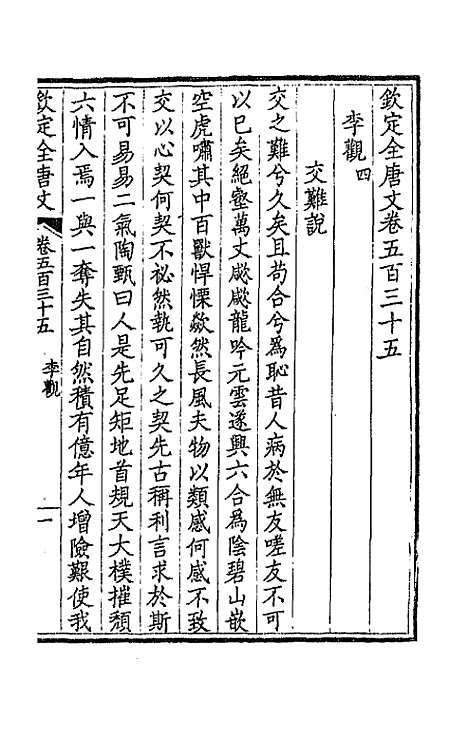 欽定全唐文卷五百三十五
李觀四
交難說
交之難兮久矣且苟合兮爲恥昔人病於無友嗟友不可
以已矣絕壑萬丈歘歘龍吟元雲遂興六合爲陰碧山嵌
空虎嘯其中百獸悍慄歘然長風夫物以類感何感不致
交以心契何契不祕然孰可久之契先古稱利言求於斯
不可易易二氣陶甄曰人是先足矩地首規天大樸摧頹
六情入焉一與一奪失其自然積有億年人增險艱使我
欽定全唐文
卷五百三十五
李觀
一